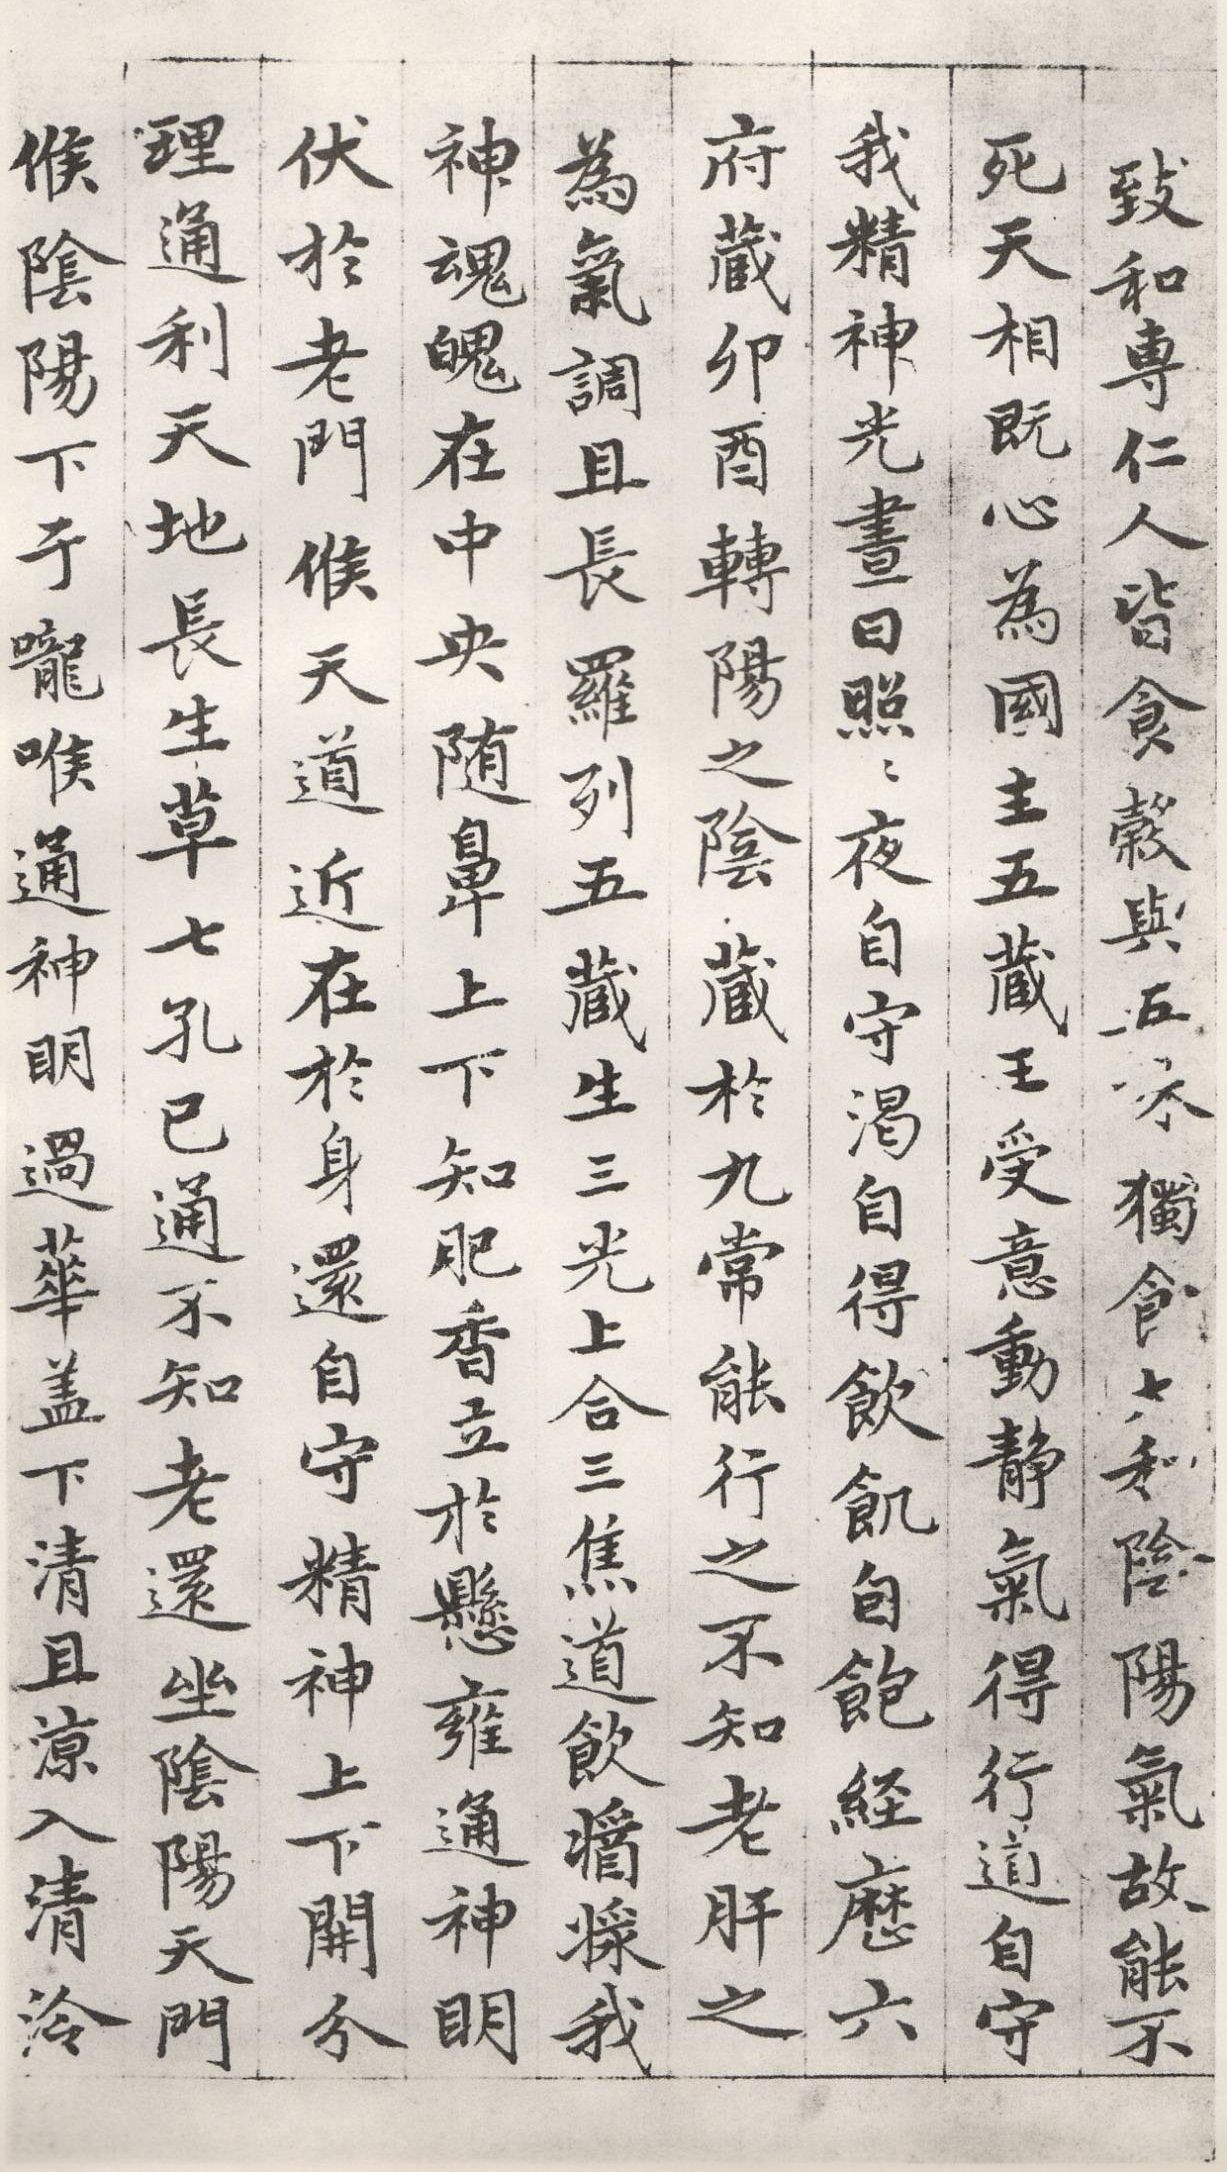 致和專仁人皆食穀與五味獨食太和陰陽氣故能不
死天相既心為國主五藏王受意動靜氣得行道自守
我精神光晝日照〻夜自守渴自得飲飢自飽経歷六
府藏卯酉轉陽之陰藏於九常能行之不知老肝之
為氣調且長羅列五藏生三光上合三焦道飲漿我
神魂魄在中央随鼻上下知肥香立於懸雍通神明
伏於老門候天道近在於身還自守精神上下開分
理通利天地長生草七孔已通不知老還坐陰陽天門
候陰陽下于嚨喉通神明過華盖下清且涼入清泠